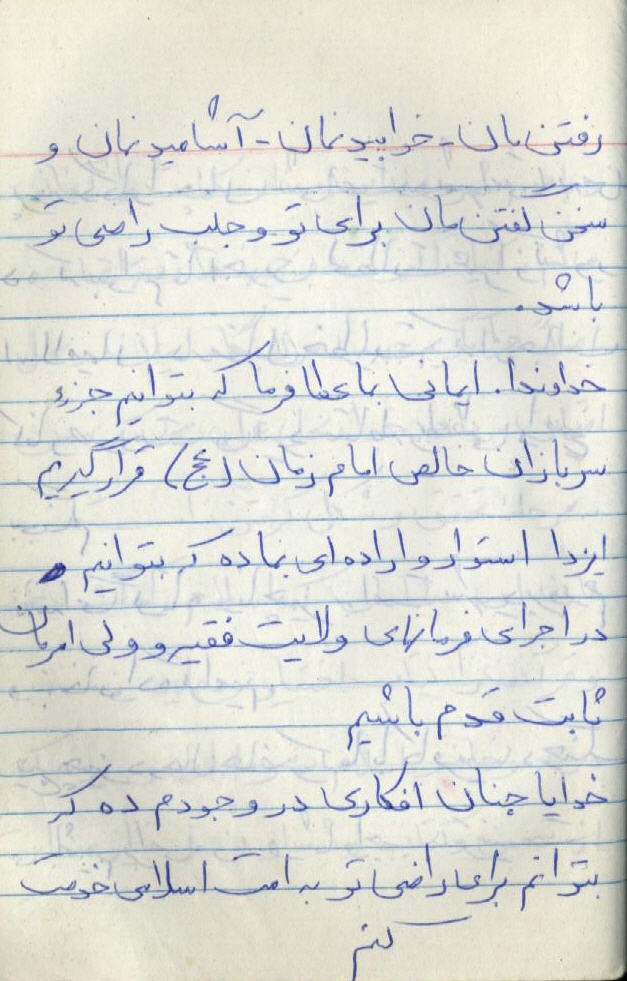 رفتن‌مان - خوابیدنمان - آشامیدنمان و
سخن گفتن‌مان برای تو و جلب راضی تو
باشد.
خداوندا. ایمانی بما عطا فرما که بتوانیم جزء
سربازان خالص امام زمان (عج) قرار گیریم
ایزدا استوار و اراده‌ای بما ده که بتوانیم
در اجرای فرمانهای ولایت فقیه و ولی امرمان
ثابت قدم باشیم
خدایا چنان افکاری در وجودم ده که
بتوانم برای راضی تو به امت اسلامی خدمت
کنم